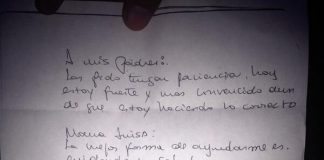 A mis padres:
Les pido tengan paciencia, hoy
estoy fuerte y mas convencido
de que estoy haciendo lo correcto
Mama
La mejor forma de ayudarme es.